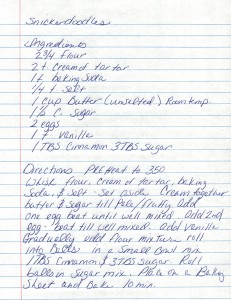 Snickerdoodles
Ingredients
2 3/4 flour
2 t cream of tartar
1 t baking soda
1/4 t salt
1 cup Butter (unsalted) Room temp.
1 1/2 C. Sugar
2 eggs
1 t vanilla
1 TBS Cinnamon 3 TBS Sugar
Directions PREHeat to 350
Whisk flour, Cream of tartar, baking
Soda, & Salt. Set aside. Cream together
butter & Sugar till Pale/fluffy. Add
one egg beat until well mixed. Add 2nd
egg - beat till well mixed. Add vanilla
Gradually add flour mixture roll
into Balls. in a Small Bowl mix
1 TBS Cinnamon & 3 TBS Sugar. Roll
balls in Sugar mix. Place on a Baking
Sheet and Bake 10 min.